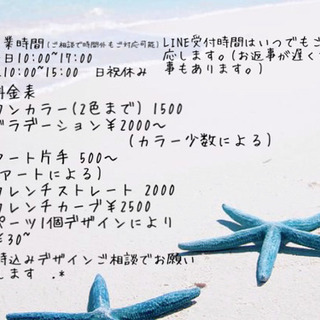 業時間(ご相談で時間外もご対応可能)
日10:00~17:00
10:00~15:00 日祝休み
LINE受付時間はいつでもご
応じます。(お返事が遅く
事もあります。)
料金表
ンカラー(2色まで) 1500
ラデーション¥2000~
(カラー少数による)
アート片手 500~
アートによる)
フレンチストレート 2000
フレンチカーブ¥2500
パーツ1個デザインにより
¥30~
持込みデザインご相談でお願い
します .*